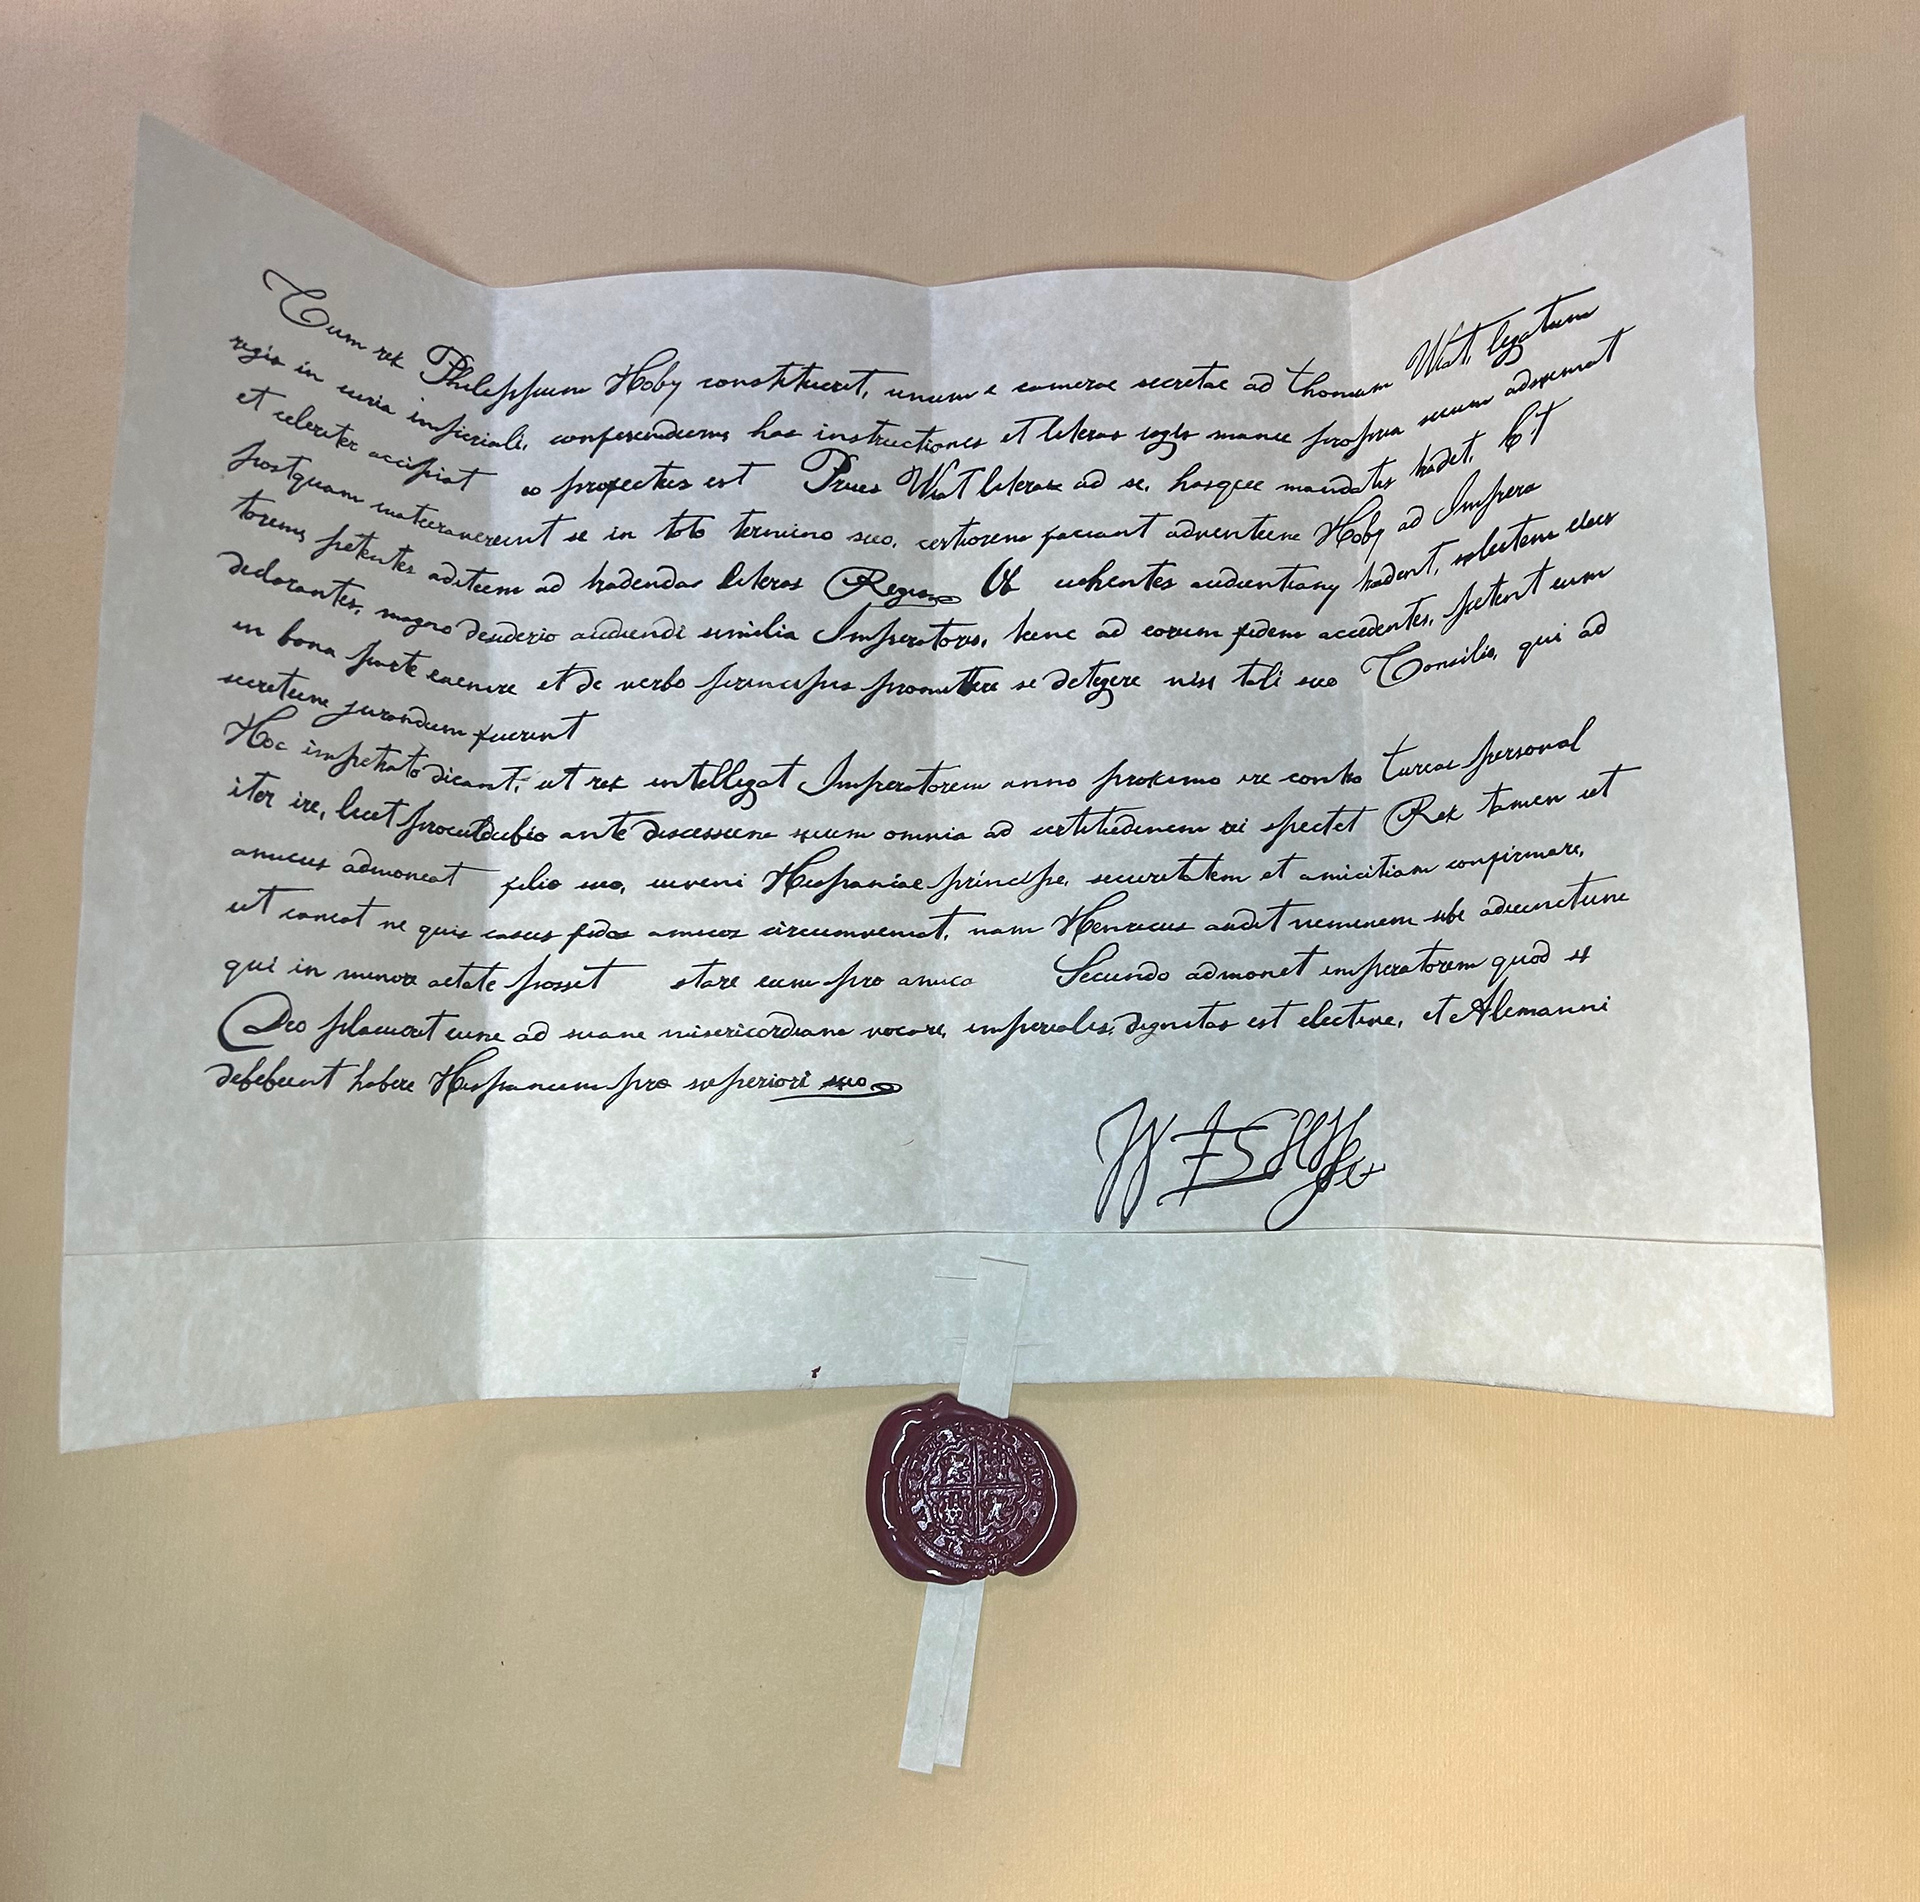 Cum rex Philippum Hoby constituerit, unum e camerae secretae ad thomam Wiat, legatum
regis in curia imperiali, conferendum, has instructiones et literas regis manu propria secum adsumat
et celeriter accipiat eo profectus est Prius Wiat literas ad se, hasque mandatis tradet, Et
postquam maturaverunt se in toto termino suo, certiorem faciant adventum Hoby ad Impera
torem, petentes aditum ad tradendas literas Regis Ut audientiam tradent, salutem eius
declarantes, magno desiderio audiendi similia Imperatoris, tunc ad eorum fidem accedentes, petent eum
in bona parte et de verbo principis promittere se detegere nisi tali suo Consilio, qui ad
secretum jurandum fuerint
Hoc impetrato dicant, ut rex intellegat Imperatorem anno proximo ire contra turcas personal
iter ire, licet proculdubio ante discessum suum omnia ad certitudinem rei spectet Rex tamen ut
amicus admoneat filio suo, iuveni Hispaniae principe, securitatem et amicitiam confirmare,
ut caveat ne quis casus fidos amicos circumveniat, nam Henricus audit neminem sibi adiunctum
qui in minore aetate possit stare eum pro amico Secundo admonet imperatorem quod si
Deo placuerit eum ad suam misericordiam vocare, imperialis, dignitas est electiva, et Alemanni
debebunt habere Hispanum pro superiori suo